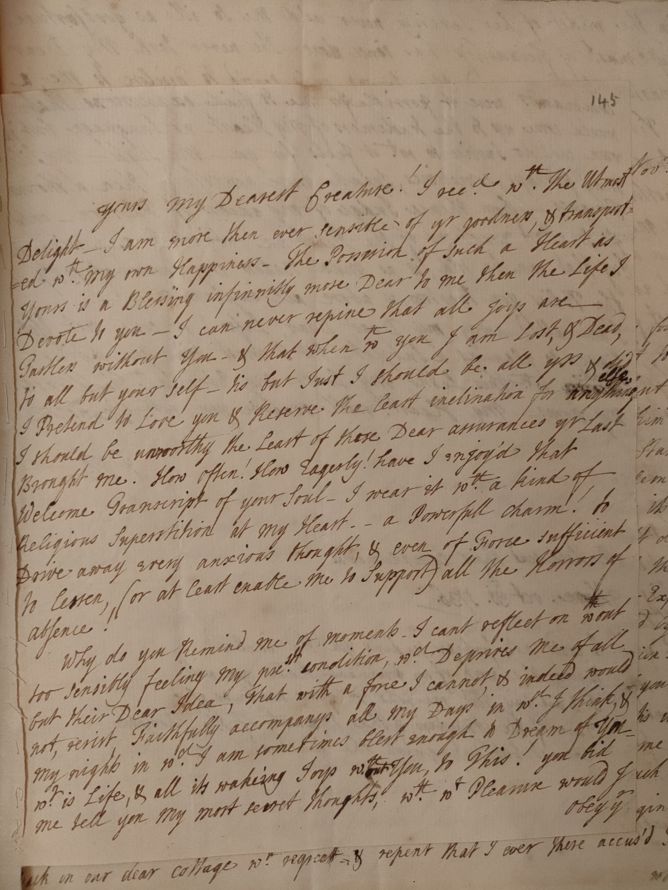 145
yours My Dearest Creature! I rec.d wth. the Utmost
Delight_ I am more then ever sensible of yr goodness, & transport-
=ed wth. my own Happiness_ The Possession of such a Heart as
Yours is a Blessing infinnitly more Dear to me then the Life I
Devote to you _ I can never repine that all Joys are
Tastless without You_ & that when wth you I am Lost, & Dead,
to all but your self_ tis but Just I should be all yrs & did
I Pretend to Love you & Reserve the least inclination for anything else
I should be unworthy the Least of those Dear assurances yr Last
Brought me. How often! How Eagerly! have I enjoy'd that
Welcome Transcript of your Soul_ I wear it wth. a kind of
Religious Superstition at my Heart. _ a Powerfull Charm! to
Drive away every anxious thought, & even of Force sufficient
to lessen, (or at least enable me to Support) all the Horrors of
absence!
Why do you Remind me of moments_ I cant reflect on wthout
too sensibly feeling my prest condition, wd. Deprives Me of all
but their Dear Idea, That with a force I cannot, & indeed would
not, resist Faithfully accompanys all my Days in wt. I think, &
my nights in wd. I am sometimes blest enough to Dream of You_
wt. is Life, & all its wakeing Joys wthout You, to This! you bid
me tell you my most secret thoughts, wth. wt Pleasure would I
obey yr
back in our dear cottage wn regreett_ & repent that I ever there accus'd